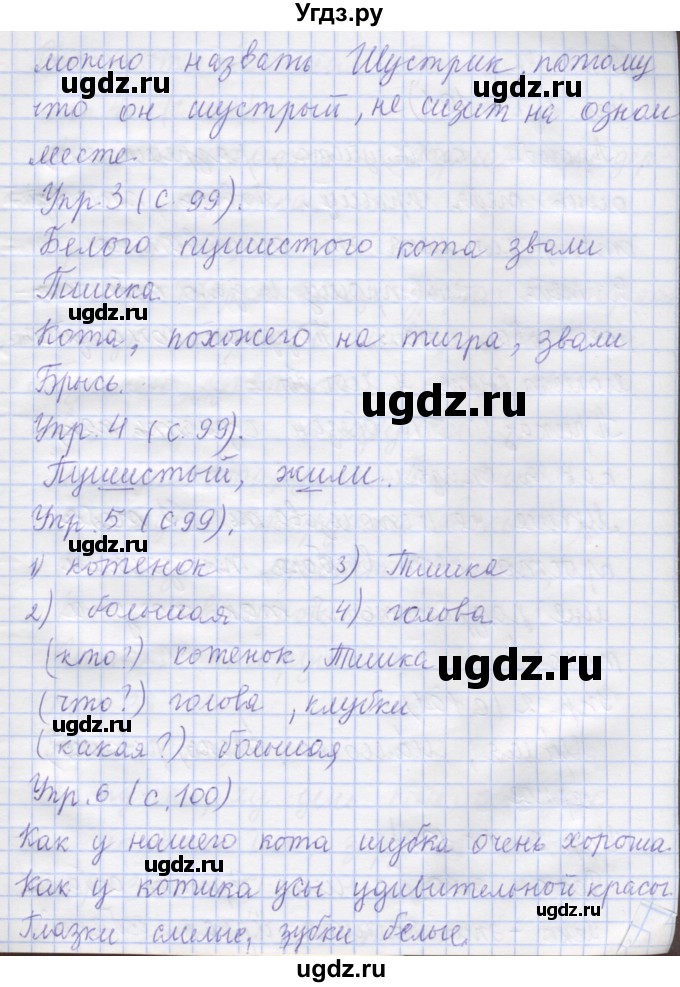 Угдз.ру
можно назвать Шустрик, потому
ugdz.ru
что он шустрый, не сидит на одном
ugdz.ru
месте.
Упр. 3 (с. 99).
Белого пушистого кота звали
Тишка.
ugdz.ru
Кота, похожего на тигра, звали
Брысь.
ugdz.ru
Упр. 4 (с. 99).
ugdz.ru
Пушистый, жили.
Упр. 5 (с 99).
ugdz.ru
1) котенок 3) Тишка
2) большая 4) голова
(кто?) котенок, Тишка
ugdz.ru
(что?) голова, клубки
ugdz.ru
(какая?) большая
Упр. 6 (с. 100)
Как у нашего кота шубка очень хороша.
ugdz.ru
Как у котика усы удивительной красы.
ugdz.ru
Глазки смелые, зубки белые.
ugdz.ru